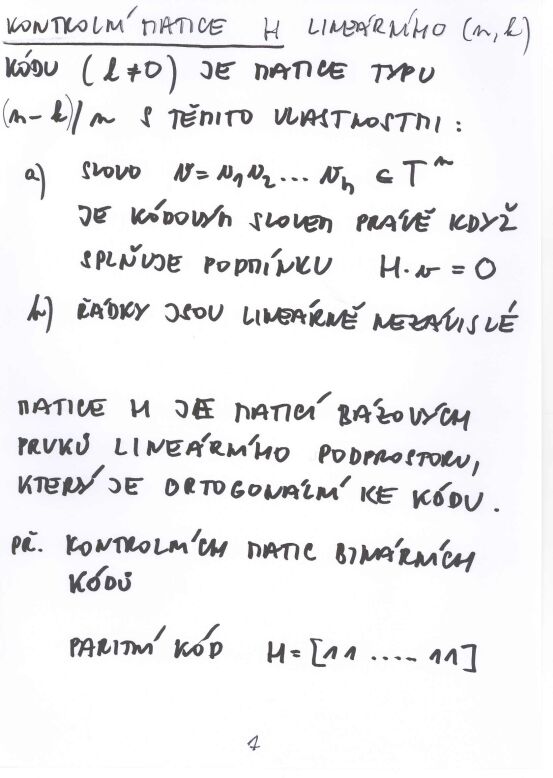 KONTROLNÍ MATICE H LINEÁRNÍHO (n, k)
KÓDU (k ≠ 0) JE MATICE TYPU
(n-k)/n S TĚMITO VLASTNOSTMI:
a) SLOVO v = v₁v₂... vₙ ∈ Tⁿ
JE KÓDOVÝM SLOVEM PRÁVĚ KDYŽ
SPLŇUJE PODMÍNKU H·v = 0
b) ŘÁDKY JSOU LINEÁRNĚ NEZÁVISLÉ
MATICE H JE MATICÍ BÁZOVÝCH
PRVKŮ LINEÁRNÍHO PODPROSTORU,
KTERÝ JE ORTOGONÁLNÍ KE KÓDU.
PŘ. KONTROLNÍCH MATIC BINÁRNÍCH
KÓDŮ
PARITNÍ KÓD H = [11 ..... 11]
1